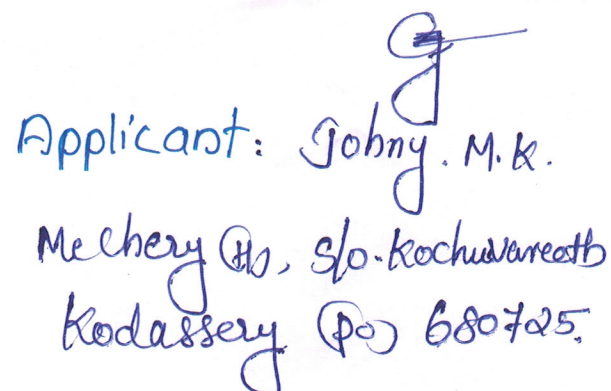 Applicant: Johny. M.K.
Mechery (H), S/o. Kochuvareeth
Kodassery (PO) 680725.